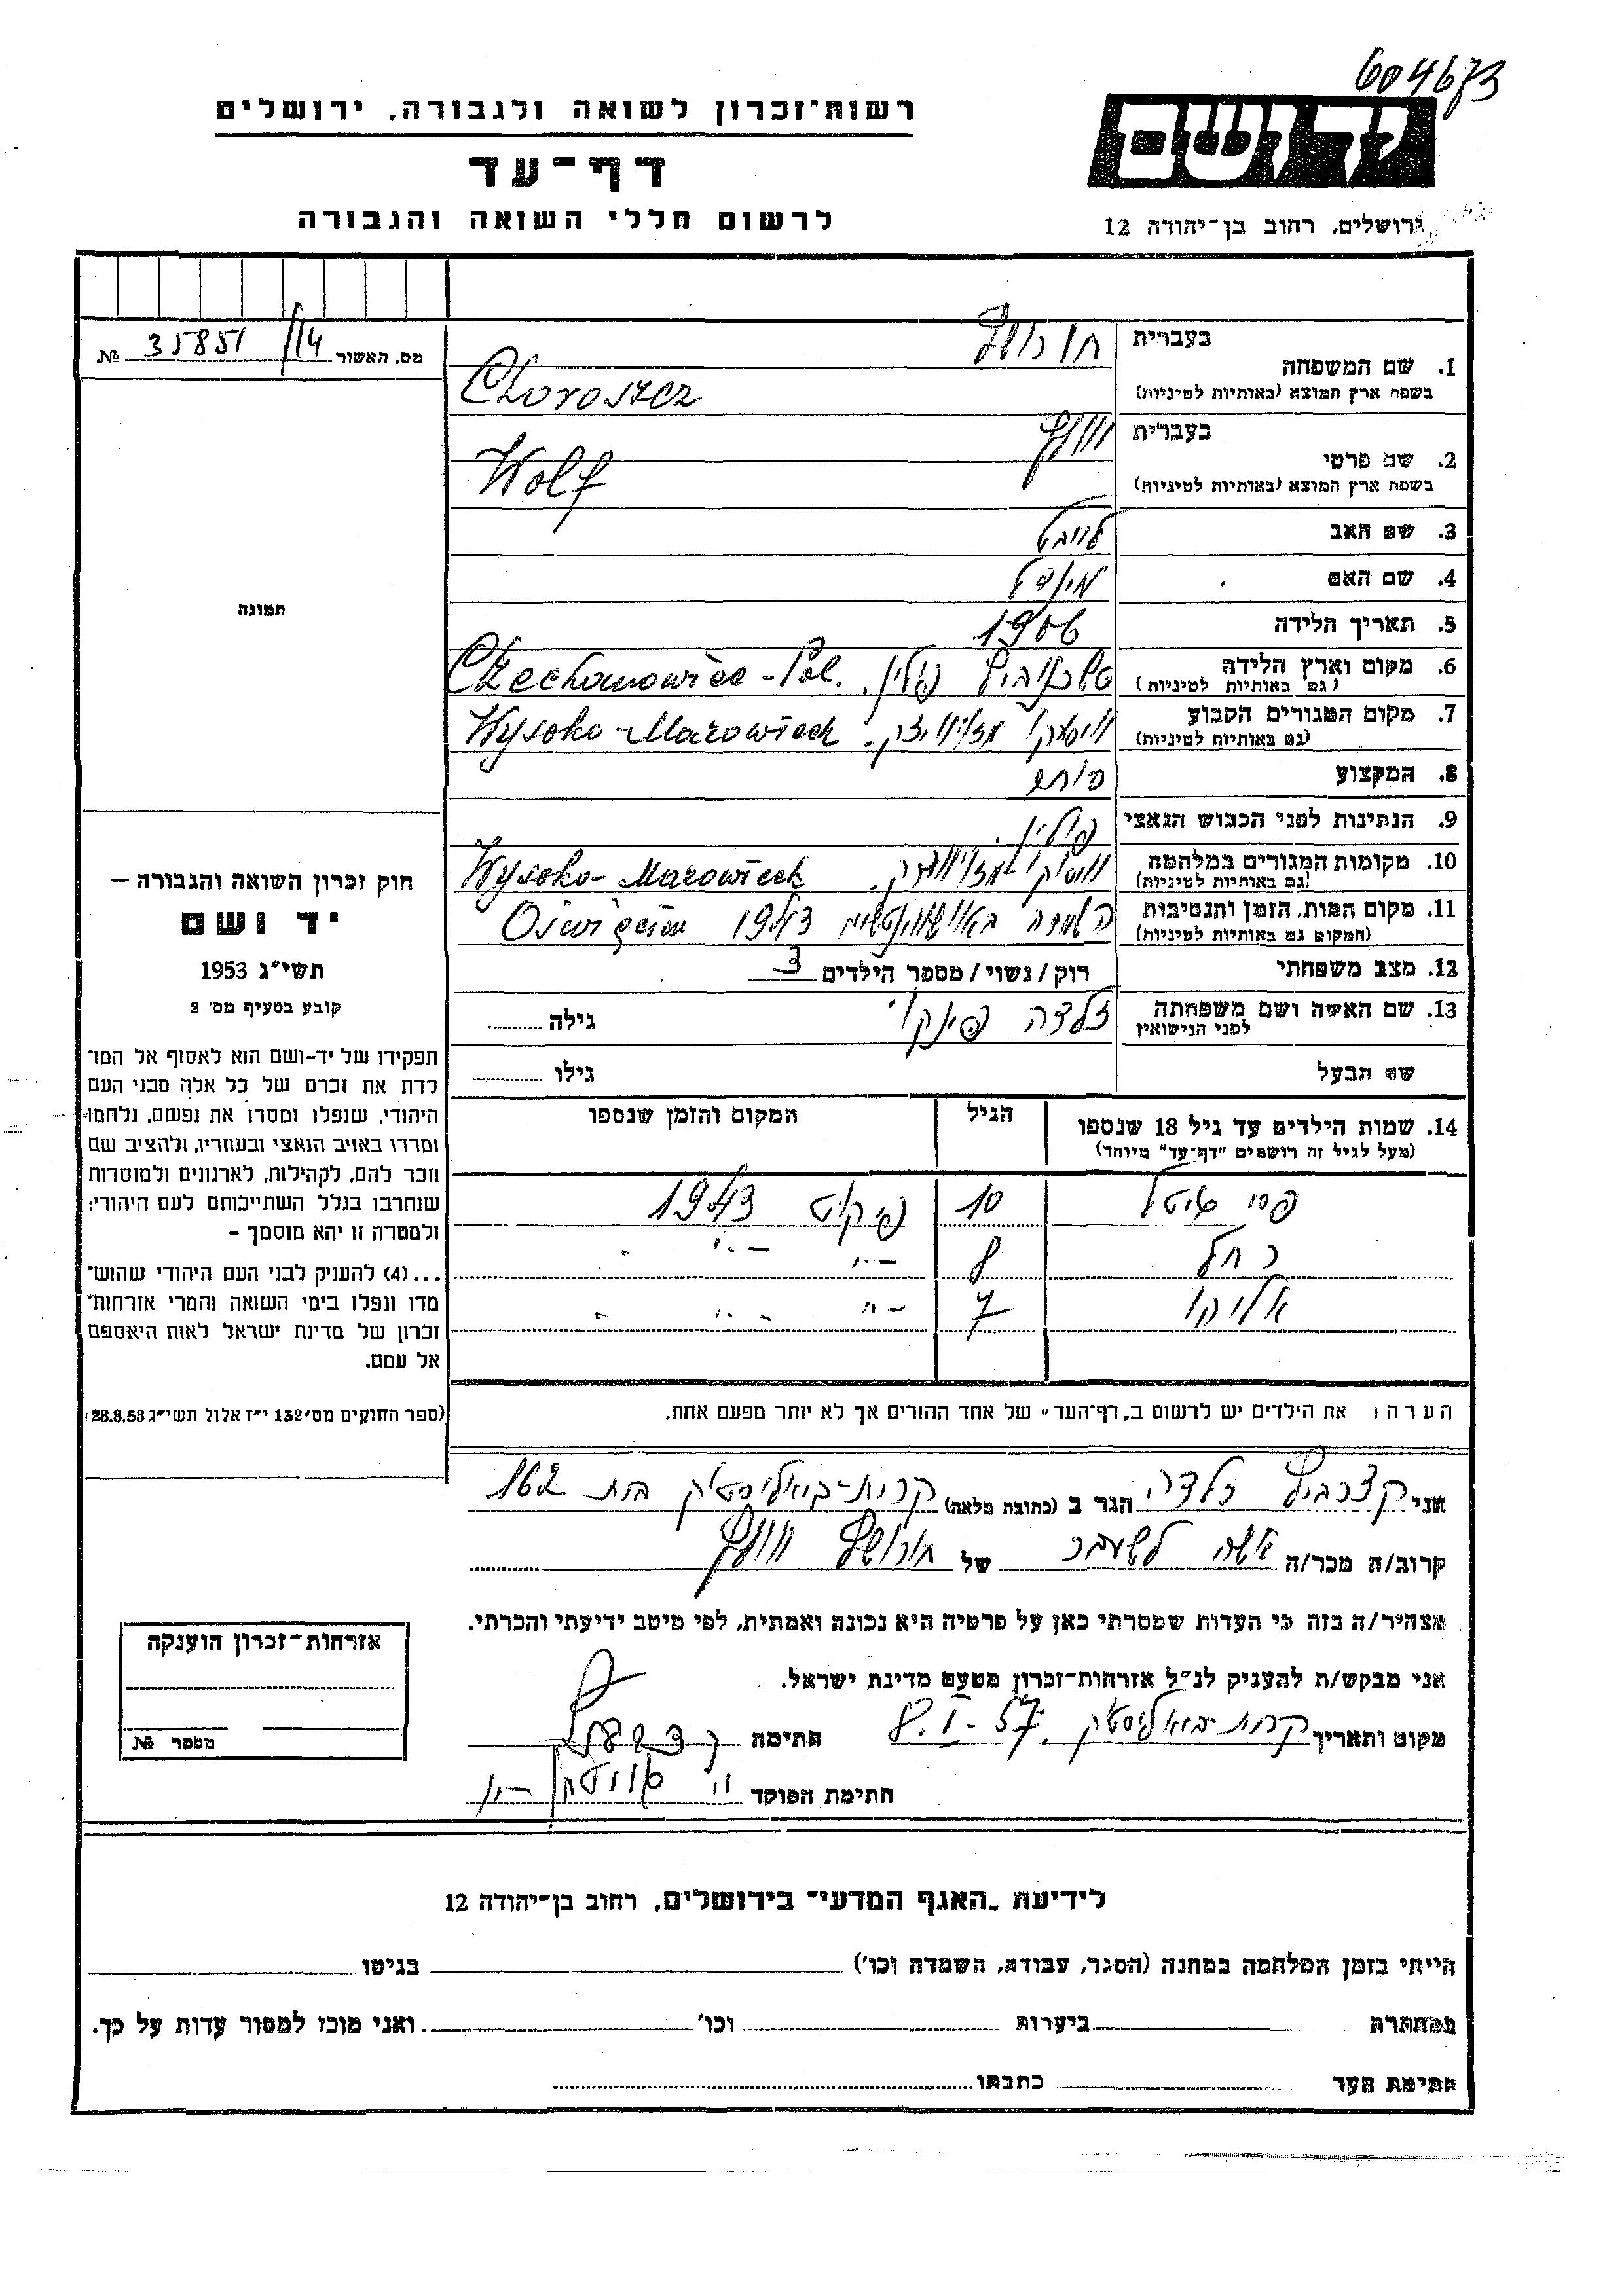 604673
רשות־זכרון לשואה ולגבורה, ירושלים
יד ושם
דף־עד
לרשום חללי השואה והגבורה
ירושלים, רחוב בן־יהודה 12
מס. האשור 14/ 35851 №
1. שם המשפחה
בעברית
בשפת ארץ המוצא (באותיות לטיניות)
Choroszcz
2. שם פרטי
בעברית וולף
בשפת ארץ המוצא (באותיות לטיניות)
Wolf
3. שם האב
4. שם האם
5. תאריך הלידה 1906
6. מקום וארץ הלידה
(גם באותיות לטיניות)
פולין. Czechonowiec - Pol.
7. מקום המגורים הקבוע
(גם באותיות לטיניות)
Wysoko - Mazowieck
8. המקצוע
9. הנתינות לפני הכבוש הנאצי פולין.
10. מקומות המגורים במלחמה
(גם באותיות לטיניות)
Wysoko - Mazowieck
11. מקום המות, הזמן והנסיבות
(המקום גם באותיות לטיניות)
השמדה 1943
12. מצב משפחתי רוק/נשוי/מספר הילדים 3
13. שם האשה ושם משפחתה
לפני הנישואין
זלדה גילה
שם הבעל גילו
14. שמות הילדים עד גיל 18 שנספו
(מעל לגיל זה רושמים "דף־עד" מיוחד)
הגיל
המקום והזמן שנספו
10 1943
רחל 8 — " — " —
7 — " — " —
הערה: את הילדים יש לרשום ב„דף־העד" של אחד ההורים אך לא יותר מפעם אחת.
תמונה
חוק זכרון השואה והגבורה —
יד ושם
תשי"ג 1953
קובע בסעיף מס' 2
תפקידו של יד־ושם הוא לאסוף אל המו־
לדת את זכרם של כל אלה מבני העם
היהודי, שנפלו ומסרו את נפשם, נלחמו
ומרדו באויב הנאצי ובעוזריו, ולהציב שם
וזכר להם, לקהילות, לארגונים ולמוסדות
שנחרבו בגלל השתייכותם לעם היהודי;
ולמטרה זו יהא מוסמך —
...(4) להעניק לבני העם היהודי שהוש־
מדו ונפלו בימי השואה והמרי אזרחות־
זכרון של מדינת ישראל לאות היאספם
אל עמם.
(ספר החוקים מס' 132 י"ז אלול תשי"ג 28.8.53)
אני זלדה הגר ב (כתובת מלאה) קרית-ביאליסטוק בית 162
קרוב/ה מכר/ה אשה לשעבר של וולף
מצהיר/ה בזה כי העדות שמסרתי כאן על פרטיה היא נכונה ואמתית, לפי מיטב ידיעתי והכרתי.
אני מבקש/ת להעניק לנ"ל אזרחות־זכרון מטעם מדינת ישראל.
מקום ותאריך קרית-ביאליסטוק, 8.I-57 חתימה
חתימת הפוקד
אזרחות־זכרון הוענקה
מספר №
לידיעת „האגף המדעי" בירושלים, רחוב בן־יהודה 12
הייתי בזמן המלחמה במחנה (הסגר, עבודה, השמדה וכו') בגיטו
במחתרת ביערות וכו' ואני מוכן למסור עדות על כך.
חתימת העד כתבתו